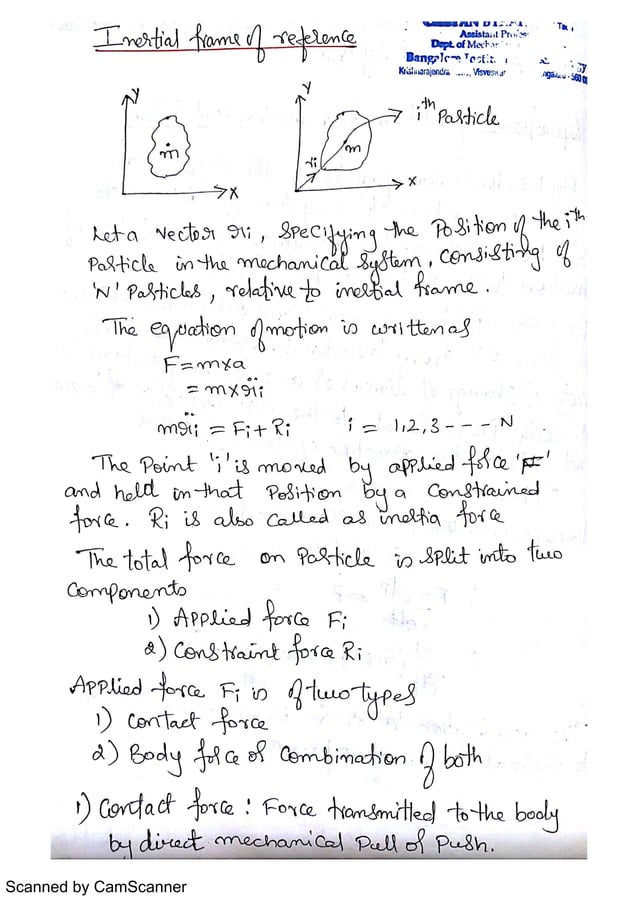 Inertial frame of reference
Assistant
Dept. of
Krishnarajendra
Y
m
X
Y
ri
m
X
ith Particle
Let a vector ri, specifying the Position of the ith
Particle in the mechanical system, consisting of
'N' Particles, relative to inertial frame.
The equation of motion is written as
F=mxa
= mxr̈i
mr̈i = Fi + Ri i = 1,2,3 - - - N
The Point 'i' is moved by applied force 'F'
and held in that Position by a constrained
force. Ri is also called as inertia force
The total force on Particle is split into two
components
1) Applied force Fi
2) Constraint force Ri
Applied force Fi is of two types
1) Contact force
2) Body force or combination of both
1) Contact force : Force transmitted to the body
by direct mechanical Pull or Push.
Scanned by CamScanner